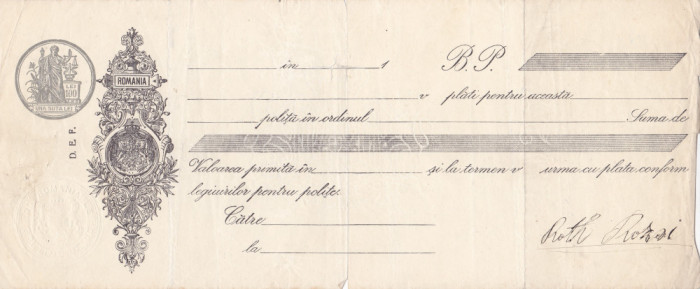 în 1 B. P.
v plăti pentru aceastá
poliţă în ordinul Suma de
Valoarea primită în şi la termen v urma cu plata conform
legiuirilor pentru poliţe.
Către
la
ROMANIA
D. E. F.
LEI
100
Roth